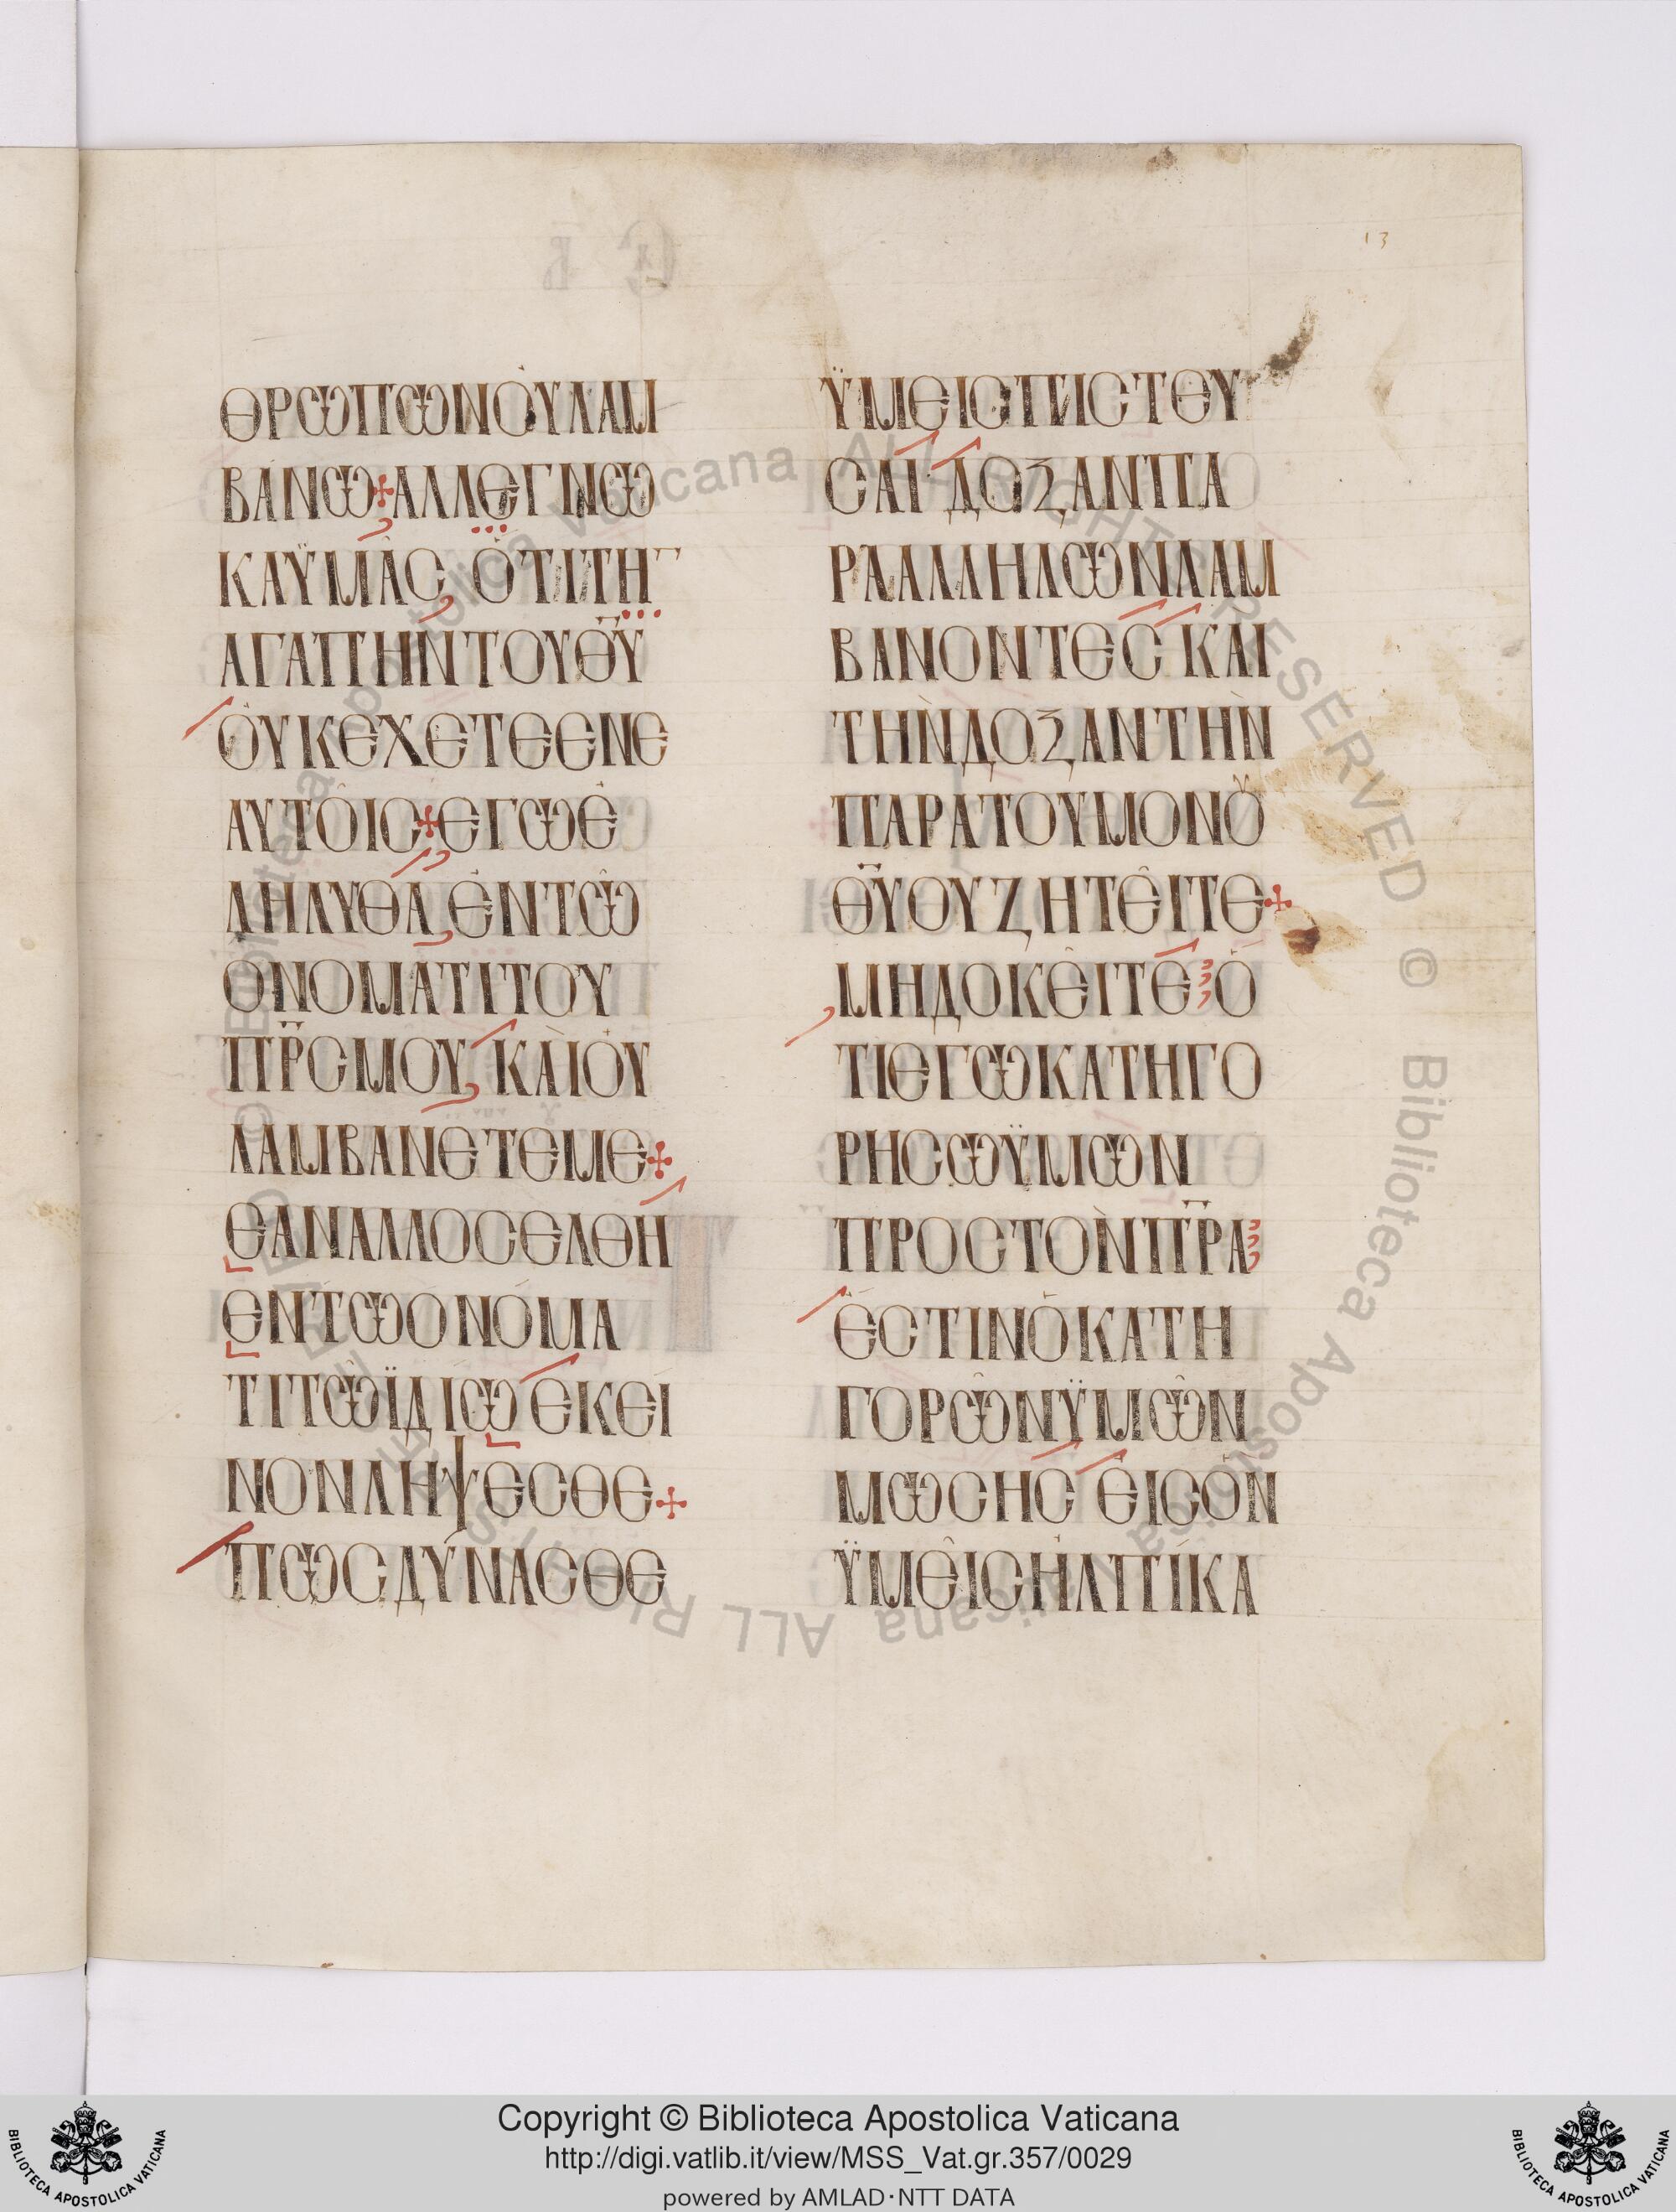 13
ΘΡΩΠΩΝΟΥΛΑΜ
ΒΑΝΩ+ΑΛΛΕΓΝΩ
ΚΑΫΜΑΣ ΟΤΙΤΗ
ΑΓΑΠΗΝΤΟΥΘΥ
ΟΥΚΕΧΕΤΕΕΝΕ
ΑΥΤΟΙΣ+ΕΓΩΕ
ΛΗΛΥΘΑ ΕΝΤΩ
ΟΝΟΜΑΤΙΤΟΥ
ΠΡΣΜΟΥ ΚΑΙΟΥ
ΛΑΜΒΑΝΕΤΕΜΕ+
ΕΑΝΑΛΛΟΣΕΛΘΗ
ΕΝΤΩΟΝΟΜΑ
ΤΙΤΩΪΔΙΩ ΕΚΕΙ
ΝΟΝΛΗΨΕΣΘΕ+
ΠΩΣΔΥΝΑΣΘΕ
ΫΜΕΙΣΠΙΣΤΕΥ
ΣΑΙ ΔΟΞΑΝΠΑ
ΡΑΑΛΛΗΛΩΝΛΑΜ
ΒΑΝΟΝΤΕΣ ΚΑΙ
ΤΗΝΔΟΞΑΝΤΗΝ
ΠΑΡΑΤΟΥΜΟΝΟΥ
ΘΥΟΥΖΗΤΕΙΤΕ+
ΜΗΔΟΚΕΙΤΕ Ο
ΤΙΕΓΩΚΑΤΗΓΟ
ΡΗΣΩΫΜΩΝ
ΠΡΟΣΤΟΝΠΡΑ
ΕΣΤΙΝΟΚΑΤΗ
ΓΟΡΩΝΫΜΩΝ
ΜΩΣΗΣ ΕΙΣΟΝ
ΫΜΕΙΣΗΛΠΙΚΑ
Copyright © Biblioteca Apostolica Vaticana
http://digi.vatlib.it/view/MSS_Vat.gr.357/0029
powered by AMLAD·NTT DATA
BIBLIOTECA APOSTOLICA VATICANA
BIBLIOTECA APOSTOLICA VATICANA